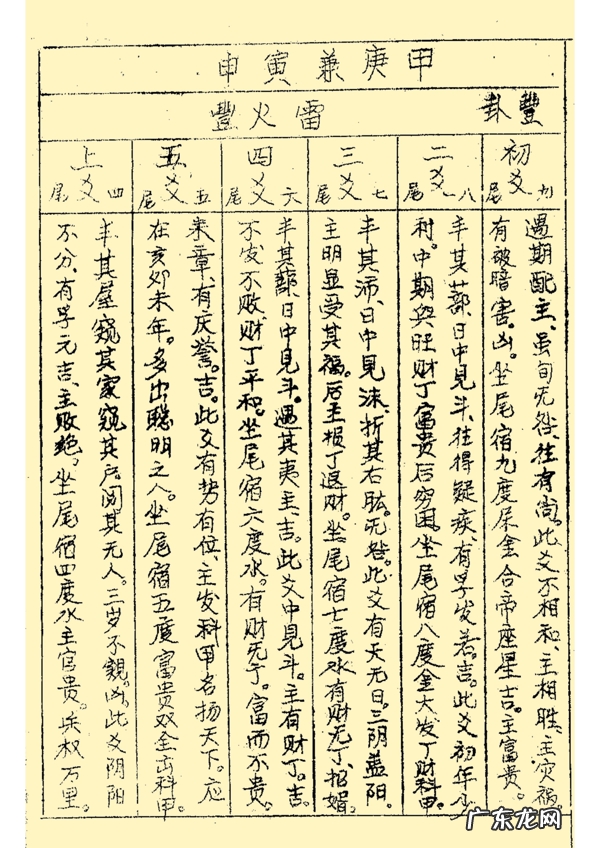 甲庚兼寅申
豐卦
雷火豐
初爻
尾九
遇期配主、虽旬无咎、往有尚。此爻不相和、主相胜、主灾祸。
有被暗害。凶。坐尾宿九度 金合帝座星吉。主富贵。
二爻
尾八
丰其蔀、日中見斗、往得疑疾、有孚发若。吉。此爻初年少
利。中期與旺财丁富贵后穷困。坐尾宿八度金大发丁财科甲。
三爻
尾七
丰其沛、日中見沫、折其右肱。无咎。此爻有天无日。三阴盖阳。
主明显受其福。后主损丁退财。坐尾宿七度水有财无丁、招婿。
四爻
尾六
丰其蔀、日中見斗。遇其夷主、吉。此爻中見斗。主有财丁。吉。
不发不败财丁平和。坐尾宿六度水。有财无丁。富而不贵。
五爻
尾五
来章、有庆誉。吉。此爻有势有位、主发科甲名扬天下。应
在亥卯未年。多出聪明之人。坐尾宿五度富贵双全出科甲。
上爻
尾四
丰其屋窥其家窥其户。阅其无人。三岁不覿。凶。此爻阴阳
不分、有孚元吉、主败绝。坐尾宿四度水主官贵。兵权万里。
广东龙网